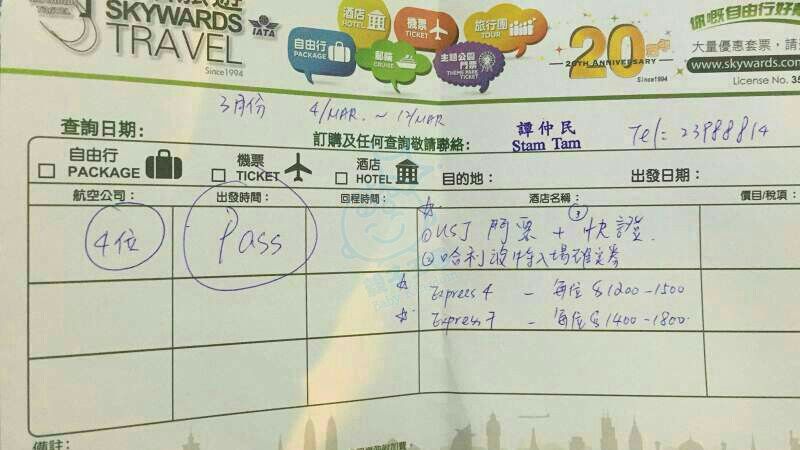 SKYWARDS
TRAVEL
Since1994
IATA
自由行
PACKAGE
酒店
HOTEL
郵輪
CRUISE
機票
TICKET
主題公園
門票
THEME PARK TICKET
旅行團
TOUR
20周年
20TH ANNIVERSARY
Since1994
你嘅自由行好
大量優惠套票，請
www.skywards.com
License No. 35
3月份 4/MAR. ~ 17/MAR
查詢日期：
訂購及任何查詢敬請聯絡： 譚仲民
Stam Tam
Tel= 23988814
自由行
PACKAGE
機票
TICKET
酒店
HOTEL
目的地： 出發日期：
航空公司： 出發時間： 回程時間： 酒店名稱： 價目/稅項：
4位 Pass
①USJ 門票 + ③快證
②哈利波特入場確定券
Express 4 — 每位 $1200-1500
Express 7 — 每位 $1400-1800
備註：